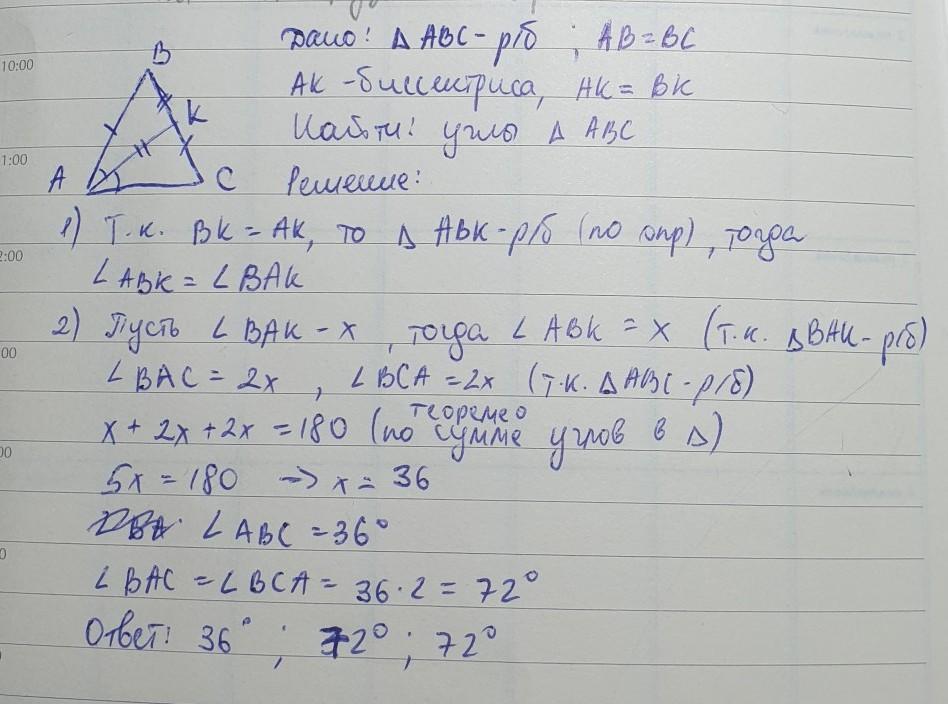 10:00
B
K
A
C
Дано: Δ ABC - р/б ; AB = BC
AK - биссектриса, AK = BK
1:00
Найти: углы Δ ABC
Решение:
1) Т.к. BK = AK, то Δ ABK - р/б (по опр), тогда
2:00
∠ABK = ∠BAK
2) Пусть ∠BAK - x, тогда ∠ABK = x (т.к. ΔBAK - р/б)
00
∠BAC = 2x, ∠BCA = 2x (т.к. ΔABC - р/б)
теореме о
x + 2x + 2x = 180 (по сумме углов в Δ)
00
5x = 180 -> x = 36
∠ABC = 36°
0
∠BAC = ∠BCA = 36·2 = 72°
Ответ: 36° ; 72° ; 72°